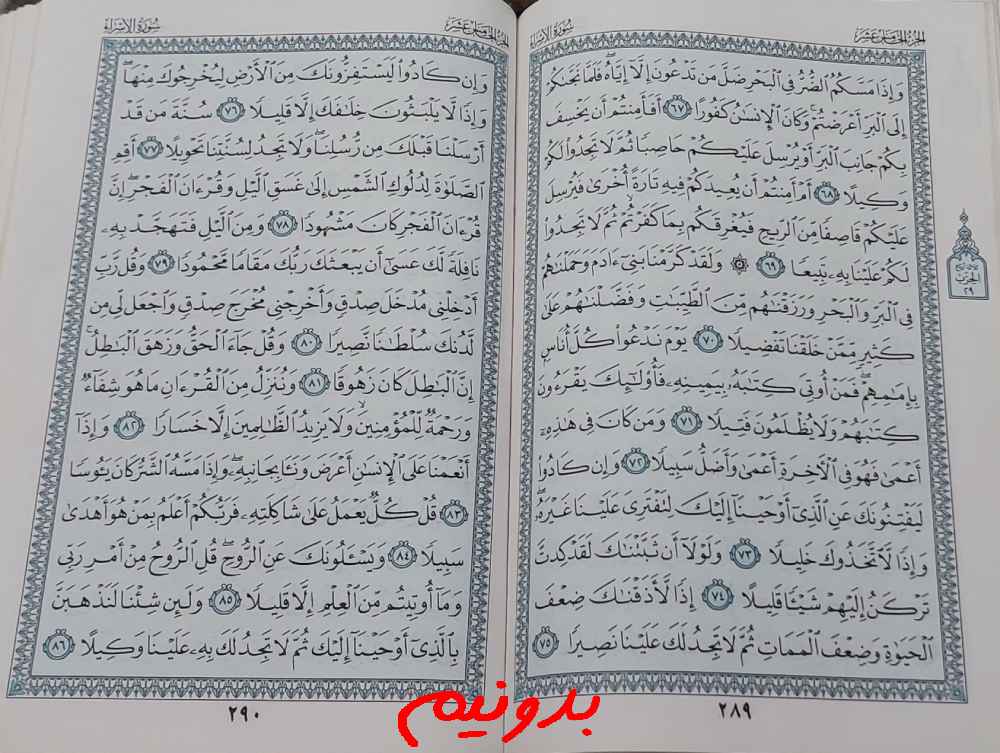 الجزء الخامس عشر
سورة الإسراء
وَإِذَا مَسَّكُمُ ٱلضُّرُّ فِى ٱلْبَحْرِ ضَلَّ مَن تَدْعُونَ إِلَّآ إِيَّاهُ ۖ فَلَمَّا نَجَّىٰكُمْ
إِلَى ٱلْبَرِّ أَعْرَضْتُمْ ۚ وَكَانَ ٱلْإِنسَٰنُ كَفُورًا ٦٧ أَفَأَمِنتُمْ أَن يَخْسِفَ
بِكُمْ جَانِبَ ٱلْبَرِّ أَوْ يُرْسِلَ عَلَيْكُمْ حَاصِبًا ثُمَّ لَا تَجِدُوا۟ لَكُمْ
وَكِيلًا ٦٨ أَمْ أَمِنتُمْ أَن يُعِيدَكُمْ فِيهِ تَارَةً أُخْرَىٰ فَيُرْسِلَ
عَلَيْكُمْ قَاصِفًا مِّنَ ٱلرِّيحِ فَيُغْرِقَكُم بِمَا كَفَرْتُمْ ۙ ثُمَّ لَا تَجِدُوا۟
لَكُمْ عَلَيْنَا بِهِۦ تَبِيعًا ٦٩ ۞ وَلَقَدْ كَرَّمْنَا بَنِىٓ ءَادَمَ وَحَمَلْنَٰهُمْ
فِى ٱلْبَرِّ وَٱلْبَحْرِ وَرَزَقْنَٰهُم مِّنَ ٱلطَّيِّبَٰتِ وَفَضَّلْنَٰهُمْ عَلَىٰ
كَثِيرٍ مِّمَّنْ خَلَقْنَا تَفْضِيلًا ٧٠ يَوْمَ نَدْعُوا۟ كُلَّ أُنَاسٍۭ
بِإِمَٰمِهِمْ ۖ فَمَنْ أُوتِىَ كِتَٰبَهُۥ بِيَمِينِهِۦ فَأُو۟لَٰٓئِكَ يَقْرَءُونَ
كِتَٰبَهُمْ وَلَا يُظْلَمُونَ فَتِيلًا ٧١ وَمَن كَانَ فِى هَٰذِهِۦٓ
أَعْمَىٰ فَهُوَ فِى ٱلْءَاخِرَةِ أَعْمَىٰ وَأَضَلُّ سَبِيلًا ٧٢ وَإِن كَادُوا۟
لَيَفْتِنُونَكَ عَنِ ٱلَّذِىٓ أَوْحَيْنَآ إِلَيْكَ لِتَفْتَرِىَ عَلَيْنَا غَيْرَهُۥ ۖ
وَإِذًا لَّٱتَّخَذُوكَ خَلِيلًا ٧٣ وَلَوْلَآ أَن ثَبَّتْنَٰكَ لَقَدْ كِدتَّ
تَرْكَنُ إِلَيْهِمْ شَيْـًٔا قَلِيلًا ٧٤ إِذًا لَّأَذَقْنَٰكَ ضِعْفَ
ٱلْحَيَوٰةِ وَضِعْفَ ٱلْمَمَاتِ ثُمَّ لَا تَجِدُ لَكَ عَلَيْنَا نَصِيرًا ٧٥
٢٨٩
الحزب
٢٩
الجزء الخامس عشر
سورة الإسراء
وَإِن كَادُوا۟ لَيَسْتَفِزُّونَكَ مِنَ ٱلْأَرْضِ لِيُخْرِجُوكَ مِنْهَا ۖ
وَإِذًا لَّا يَلْبَثُونَ خِلَٰفَكَ إِلَّا قَلِيلًا ٧٦ سُنَّةَ مَن قَدْ
أَرْسَلْنَا قَبْلَكَ مِن رُّسُلِنَا ۖ وَلَا تَجِدُ لِسُنَّتِنَا تَحْوِيلًا ٧٧ أَقِمِ
ٱلصَّلَوٰةَ لِدُلُوكِ ٱلشَّمْسِ إِلَىٰ غَسَقِ ٱلَّيْلِ وَقُرْءَانَ ٱلْفَجْرِ ۖ إِنَّ
قُرْءَانَ ٱلْفَجْرِ كَانَ مَشْهُودًا ٧٨ وَمِنَ ٱلَّيْلِ فَتَهَجَّدْ بِهِۦ
نَافِلَةً لَّكَ عَسَىٰٓ أَن يَبْعَثَكَ رَبُّكَ مَقَامًا مَّحْمُودًا ٧٩ وَقُل رَّبِّ
أَدْخِلْنِى مُدْخَلَ صِدْقٍ وَأَخْرِجْنِى مُخْرَجَ صِدْقٍ وَٱجْعَل لِّى مِن
لَّدُنكَ سُلْطَٰنًا نَّصِيرًا ٨٠ وَقُلْ جَآءَ ٱلْحَقُّ وَزَهَقَ ٱلْبَٰطِلُ ۚ
إِنَّ ٱلْبَٰطِلَ كَانَ زَهُوقًا ٨١ وَنُنَزِّلُ مِنَ ٱلْقُرْءَانِ مَا هُوَ شِفَآءٌ
وَرَحْمَةٌ لِّلْمُؤْمِنِينَ ۙ وَلَا يَزِيدُ ٱلظَّٰلِمِينَ إِلَّا خَسَارًا ٨٢ وَإِذَآ
أَنْعَمْنَا عَلَى ٱلْإِنسَٰنِ أَعْرَضَ وَنَـَٔا بِجَانِبِهِۦ ۖ وَإِذَا مَسَّهُ ٱلشَّرُّ كَانَ يَـُٔوسًا
٨٣ قُلْ كُلٌّ يَعْمَلُ عَلَىٰ شَاكِلَتِهِۦ فَرَبُّكُمْ أَعْلَمُ بِمَنْ هُوَ أَهْدَىٰ
سَبِيلًا ٨٤ وَيَسْـَٔلُونَكَ عَنِ ٱلرُّوحِ ۖ قُلِ ٱلرُّوحُ مِنْ أَمْرِ رَبِّى
وَمَآ أُوتِيتُم مِّنَ ٱلْعِلْمِ إِلَّا قَلِيلًا ٨٥ وَلَئِن شِئْنَا لَنَذْهَبَنَّ
بِٱلَّذِىٓ أَوْحَيْنَآ إِلَيْكَ ثُمَّ لَا تَجِدُ لَكَ بِهِۦ عَلَيْنَا وَكِيلًا ٨٦
٢٩٠
بدونیم